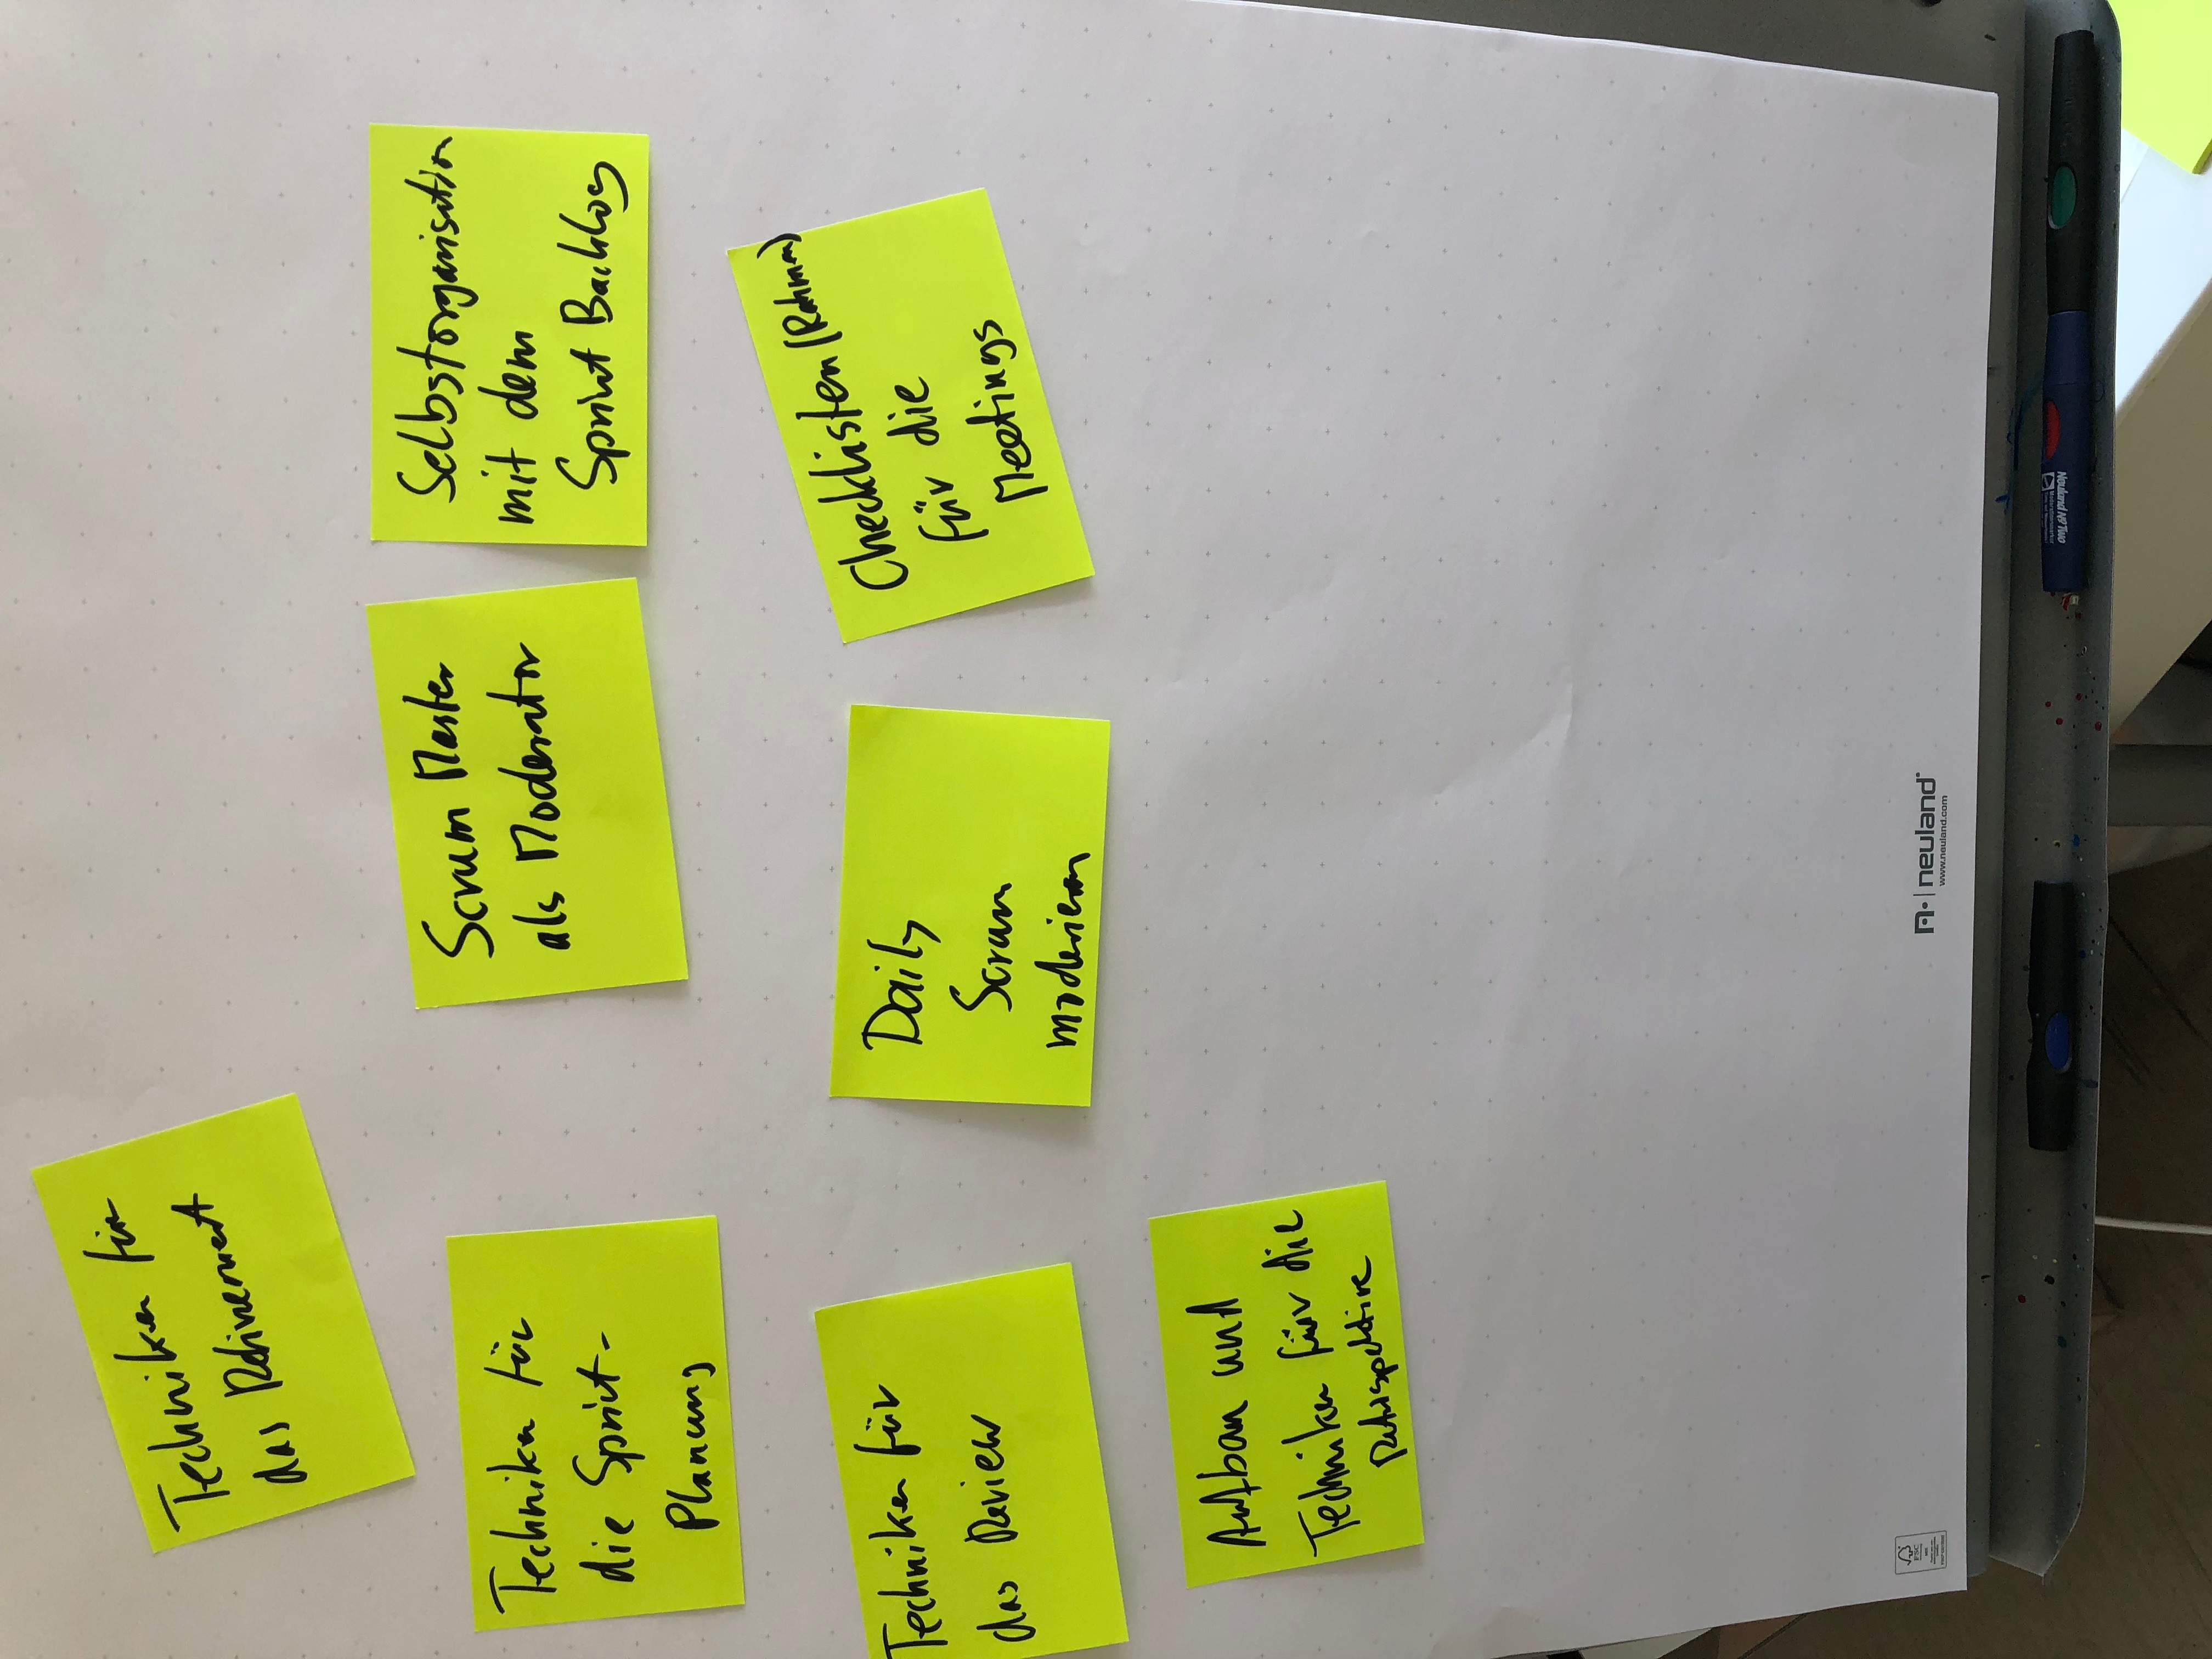 Techniken für
das Refinement
Techniken für
die Sprint-
Planung
Scrum Master
als Moderator
Selbstorganisation
mit dem
Sprint Backlog
Techniken für
das Review
Daily
Scrum
moderieren
Checklisten (Rahmen)
für die
Meetings
Aufbau und
Techniken für die
Retrospektive
FSC
neuland
www.neuland.com
Neuland No. Two